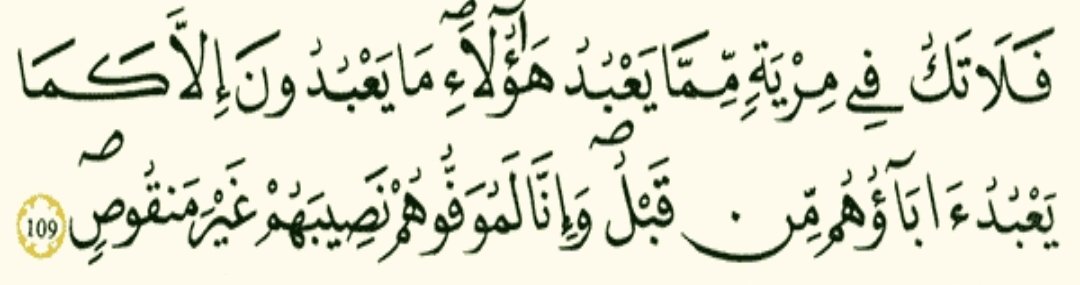 فَلَا تَكُ فِے مِرْيَةٍ مِّمَّا يَعْبُدُ هَٰٓؤُلَآءِۖ مَا يَعْبُدُونَ إِلَّا كَمَا
يَعْبُدُ ءَابَآؤُهُم مِّن قَبْلُۖ وَإِنَّا لَمُوَفُّوهُمْ نَصِيبَهُمْ غَيْرَ مَنقُوصٍۖ 109